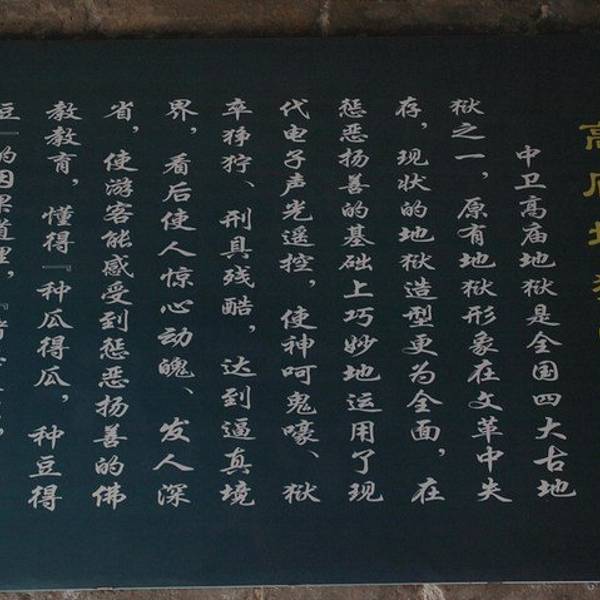 高庙地狱
中卫高庙地狱是全国四大古地
狱之一，原有地狱形象在文革中失
存，现状的地狱造型更为全面，在
惩恶扬善的基础上巧妙地运用了现
代电子声光遥控，使神呵鬼嚎、狱
卒狰狞、刑具残酷，达到逼真境
界，看后使人惊心动魄、发人深
省，使游客能感受到惩恶扬善的佛
教教育，懂得『种瓜得瓜，种豆得
豆』的因果道理，